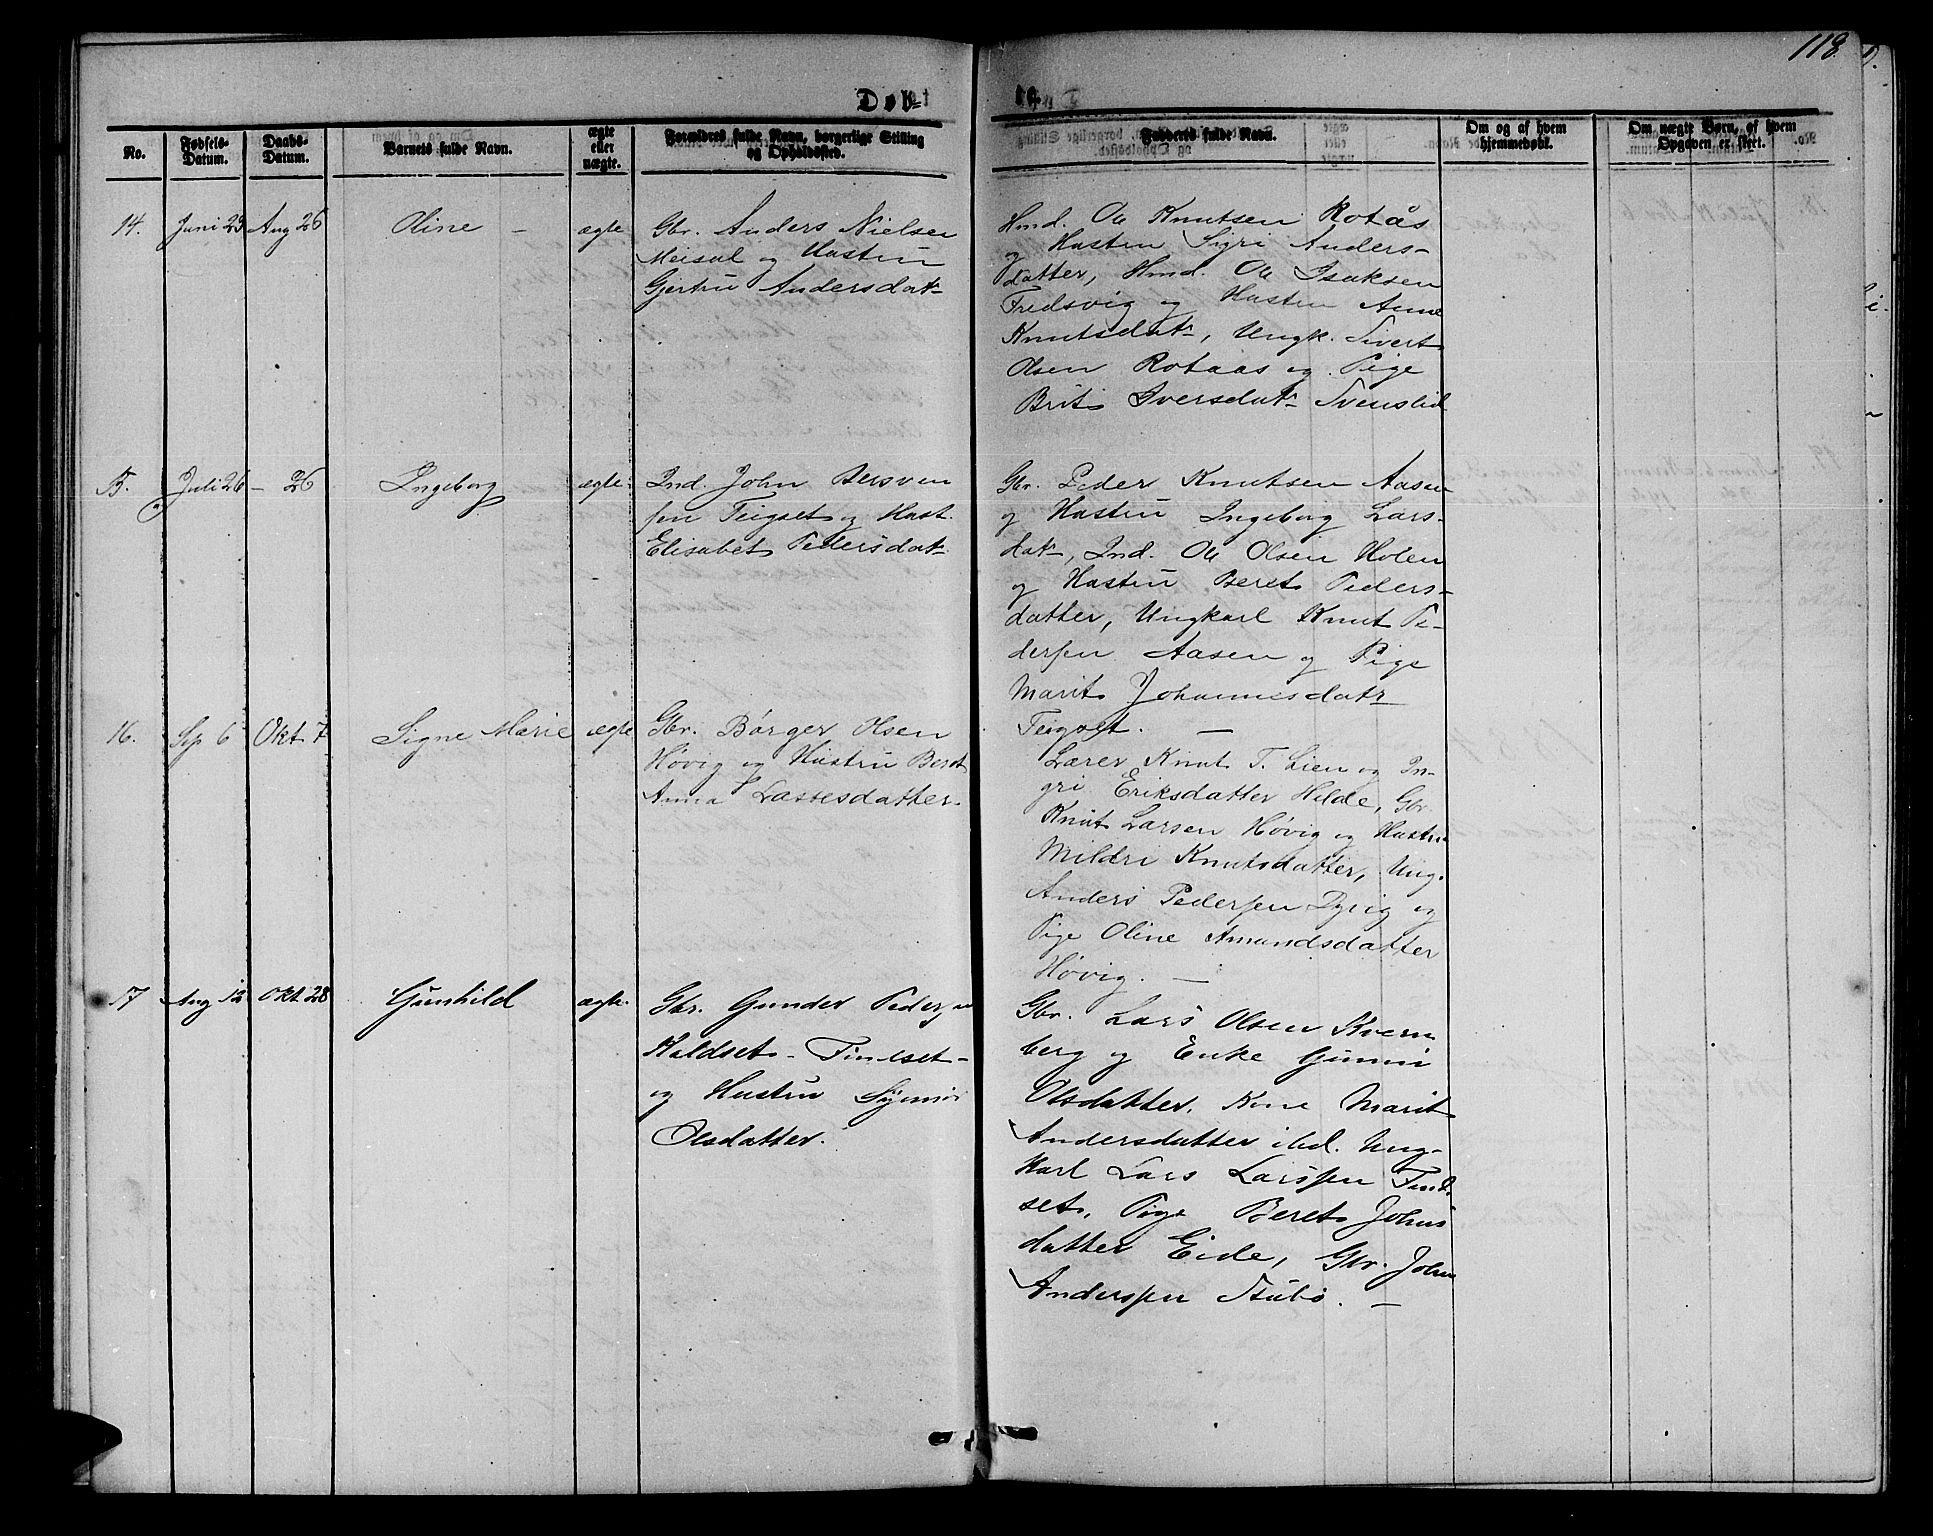 118
Døb-
te.
No.
Fødsels-
Datum.
Daabs-
Datum.
Barnets fulde Navn.
ægte
eller
uægte.
Forældres fulde Navn, borgerlige Stilling
og Opholdssted.
Faddernes fulde Navn.
Om og af hvem
hjemmedøbt.
Om uægte Børn, af hvem
Opgaven er skeet.
14. Juni 23 Aug 26 Oline - ægte
Gbr. Anders Nielsen
Meisal og Hustru
Gjertru Andersdat-
Hmd. Ole Knutsen Rotås
og Hustru Sigri Anders-
datter, Hmd. Ole Isaksen
Fredsvig og Hustru Anne
Knutsdat-, Ungk. Sivert
Olsen Rotaas og Pige
Brit Iversdat- Svenslid
15. Juli 26 - 26 Ingeborg ægte.
Ind. John Bersven
sen Teigset og Hust.
Elisabet Pedersdat-
Gbr. Peder Knutsen Aasen
og Hustru Ingeborg Lars-
dat-, Ind. Ole Olsen Holen
og Hustru Beret Peders-
datter, Ungkarl Knut Pe-
dersen Aasen og Pige
Marit Johannesdatr
Teigset. -
16. Sep 6 Okt 7 Signe Marie ægte
Gbr. Børger Olsen
Høvig og Hustru Beret
Anna Lassesdatter.
Lærer Knut T. Lien og In-
gri Eriksdatter Hilde, Gbr.
Knut Larsen Høvig og Hustru
Mildri Knutsdatter, Ung.
Anders Pedersen Dyvig og
Pige Oline Amundsdatter
Høvig. -
17 Aug 12 Okt 28 Gunhild ægte.
Gbr. Gunder Pedersen
Haldset - Tindset -
og Hustru Synnøi
Olsdatter.
Gbr. Lars Olsen Kvern
berg og Enke Gunni
Olsdatter. Kone Marit
Andersdatter ibd. Ung-
karl Lars Larssen Tind-
set, Pige Beret Johns
datter Eide, Gbr. John
Anderssen Stubø. -